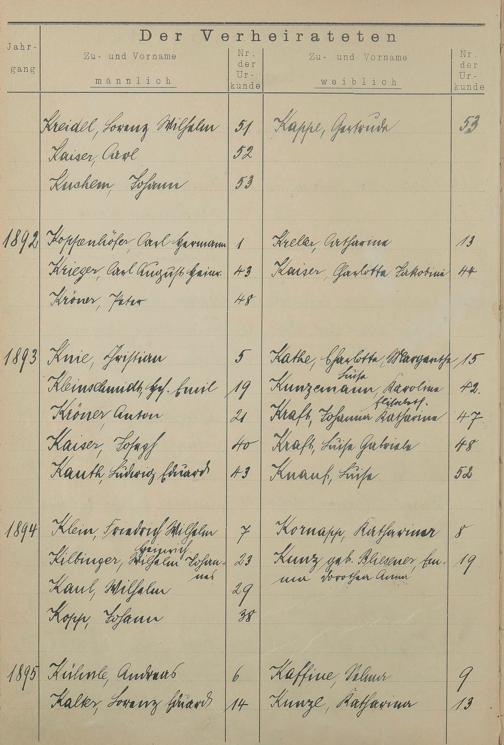 Der Verheirateten
Jahrgang Zu- und Vorname männlich Nr. der Urkunde Zu- und Vorname weiblich Nr. der Urkunde
Kreidel, Lorenz Wilhelm 51 Kappe, Gertrude 53
Kaiser, Carl 52
Johann 53
1892 Koppenhöfer Carl Hermann 1 Kreller, Catharine 13
Krieger, Carl August Heinr. 43 Kaiser, Charlotte Jakobine 44
Kröner, Peter 48
1893 Knie, Christian 5 Kathe, Charlotte, Margarethe 15
Kleinschmidt, Emil 19 Kunzemann, Luise Karoline 42.
Kröner, Anton 21 Kraft, Johanna Elisabeth. Katharine 47
Kaiser, Joseph 40 Kraft, Luise Gabriele 48
Kauth, Ludwig Eduard 43 Knauf, Luise 52
1894 Klein, Friedrich Wilhelm 7 Kornapp, Katharina 8
Kilbinger, Heinrich Wilhelm Johannes 23 Kunz geb. Emma Dorothea Anna 19
Kaul, Wilhelm 29
Kopp, Johann 38
1895 Andreas 6 Kaffine, Selma 9
Kalker, Lorenz Eduard 14 Kunze, Katharina 13